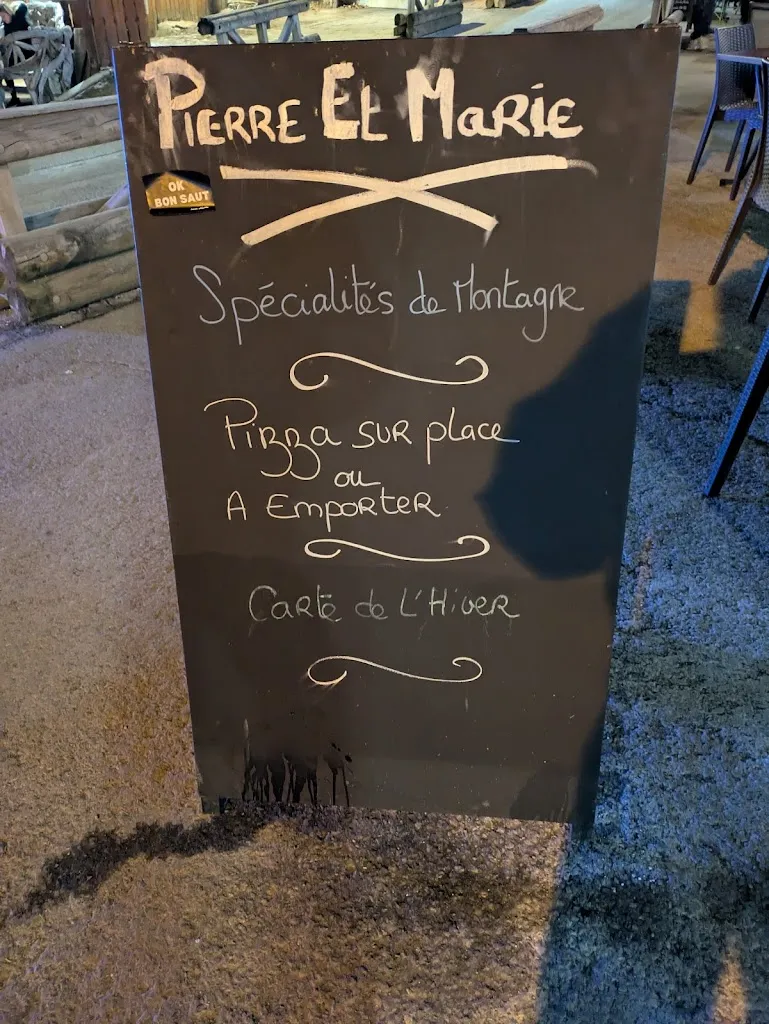 Pierre Et Marie
OK
BON SAUT
Spécialités de Montagne
Pizza sur place
ou
A Emporter
Carte de L'Hiver